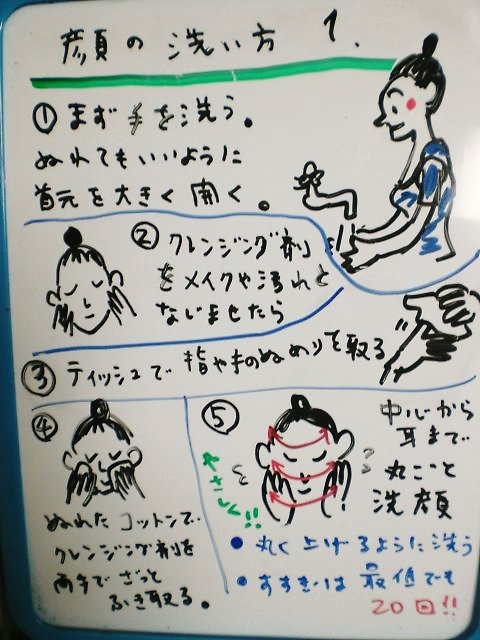 顔の洗い方 1.
①まず手を洗う。
ぬれてもいいように
首元を大きく開く。
②クレンジング剤
をメイクや汚れと
なじませたら
③ティッシュで指や手のぬめりを取る
④
ぬれたコットンで
クレンジング剤を
両手でざっと
ふき取る。
⑤
やさしく!!
中心から
耳まで
丸ごと
洗顔
●丸く上げるように洗う
●すすぎは最低でも
20回!!